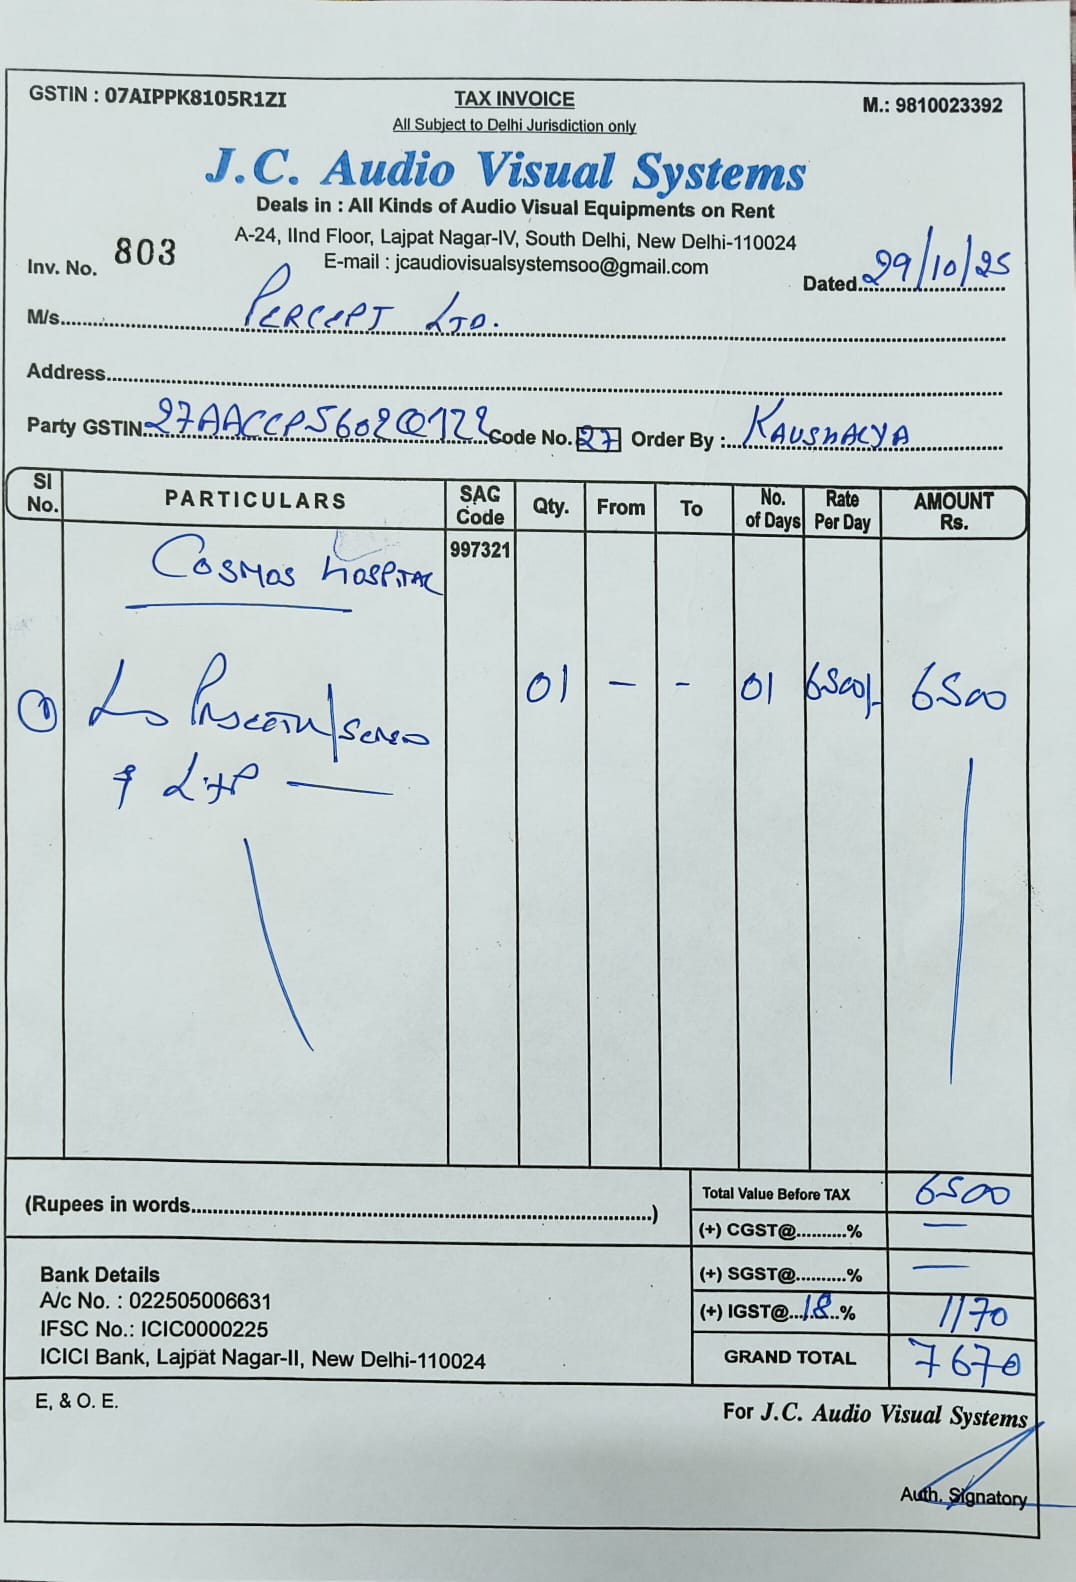 GSTIN : 07AIPPK8105R1ZI TAX INVOICE M.: 9810023392
All Subject to Delhi Jurisdiction only
J.C. Audio Visual Systems
Deals in : All Kinds of Audio Visual Equipments on Rent
A-24, IInd Floor, Lajpat Nagar-IV, South Delhi, New Delhi-110024
E-mail : jcaudiovisualsystemsoo@gmail.com
Inv. No. 803 Dated 29/10/25
M/s. PERCEPT LTD.
Address
Party GSTIN 27AACCP5602Q1ZZ Code No. 27 Order By : KAUSHALYA
SI No. PARTICULARS SAG Code Qty. From To No. of Days Rate Per Day AMOUNT Rs.
COSMOS HOSPITAL 997321
① 01 – - 01 6500/- 6500
Total Value Before TAX 6500
(Rupees in words..........)
(+) CGST@..........% —
(+) SGST@..........% —
(+) IGST@...18..% 1170
GRAND TOTAL 7670
Bank Details
A/c No. : 022505006631
IFSC No.: ICIC0000225
ICICI Bank, Lajpat Nagar-II, New Delhi-110024
E, & O. E.
For J.C. Audio Visual Systems
Auth. Signatory